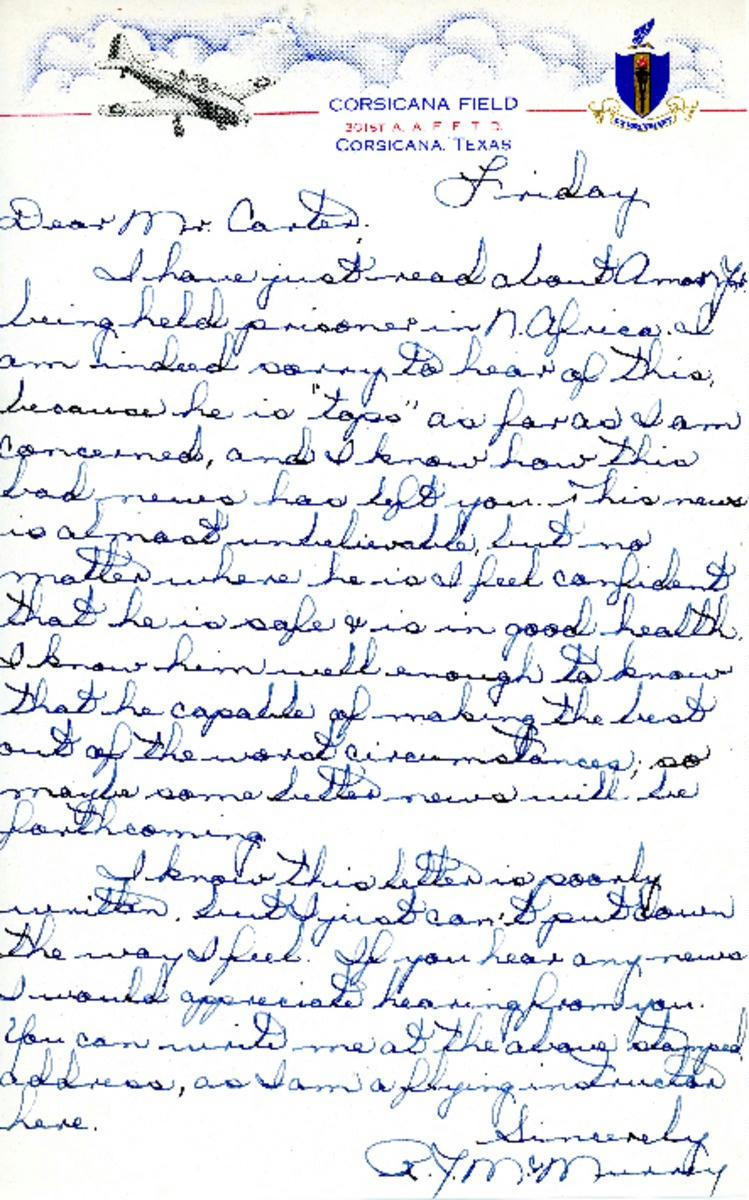 CORSICANA FIELD
301ST A. A. F. F. T. D.
CORSICANA, TEXAS
Friday
Dear Mr. Carter.
I have just read about Amon Jr.
being held prisoner in N. Africa. I
am indeed sorry to hear of this,
because he is "tops" as far as I am
concerned, and I know how this
bad news has left you. This news
is almost unbelievable, but no
matter where he is I feel confident
that he is safe & is in good health.
I know him well enough to know
that he capable of making the best
out of the worst circumstances, so
maybe some better news will be
forthcoming.
I know this letter is poorly
written, but I just can't put down
the way I feel. If you hear any news
I would appreciate hearing from you.
You can write me at the above stamped
address, as I am a flying instructor
here.
Sincerely
R.Y. McMurray